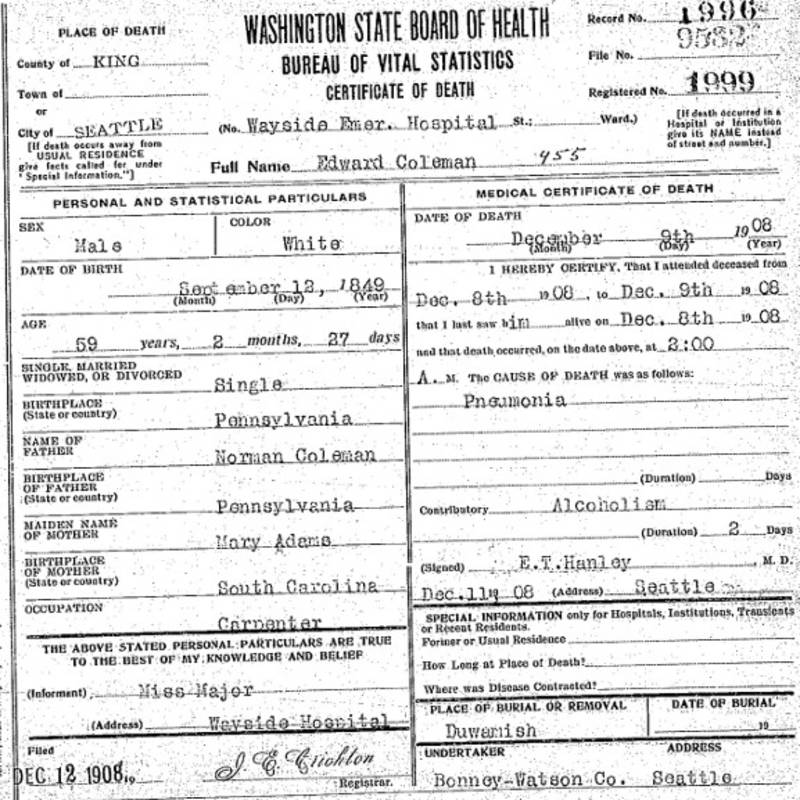 WASHINGTON STATE BOARD OF HEALTH
BUREAU OF VITAL STATISTICS
CERTIFICATE OF DEATH
PLACE OF DEATH
County of KING
Town of
or
City of SEATTLE
[If death occurs away from
USUAL RESIDENCE
give facts called for under
"Special Information."]
Record No. 1996
File No. 9532
Registered No. 1999
(No. Wayside Emer. Hospital St.; Ward.)
[If death occurred in a
Hospital or Institution
give its NAME instead
of street and number.]
Full Name Edward Coleman 955
PERSONAL AND STATISTICAL PARTICULARS
SEX
Male
COLOR
White
DATE OF BIRTH
September 12, 1849
(Month) (Day) (Year)
AGE
59 years, 2 months, 27 days
SINGLE, MARRIED
WIDOWED, OR DIVORCED
Single
BIRTHPLACE
(State or country)
Pennsylvania
NAME OF
FATHER
Norman Coleman
BIRTHPLACE
OF FATHER
(State or country)
Pennsylvania
MAIDEN NAME
OF MOTHER
Mary Adams
BIRTHPLACE
OF MOTHER
(State or country)
South Carolina
OCCUPATION
Carpenter
THE ABOVE STATED PERSONAL PARTICULARS ARE TRUE
TO THE BEST OF MY KNOWLEDGE AND BELIEF
(Informant) Miss Major
(Address) Wayside Hospital
Filed
DEC 12 1908, 19
J. E. Crichton
Registrar.
MEDICAL CERTIFICATE OF DEATH
DATE OF DEATH
December 9th 1908
(Month) (Day) (Year)
I HEREBY CERTIFY, That I attended deceased from
Dec. 8th 1908, to Dec. 9th 1908
that I last saw him alive on Dec. 8th 1908
and that death occurred, on the date above, at 2:00
A. M. The CAUSE OF DEATH was as follows:
Pneumonia
(Duration) Days
Contributory Alcoholism
(Duration) 2 Days
(Signed) E.T.Hanley, M. D.
Dec.11 19 08 (Address) Seattle
SPECIAL INFORMATION only for Hospitals, Institutions, Transients
or Recent Residents.
Former or Usual Residence
How Long at Place of Death?
Where was Disease Contracted?
PLACE OF BURIAL OR REMOVAL
Duwamish
DATE OF BURIAL
19
UNDERTAKER
Bonney-Watson Co.
ADDRESS
Seattle